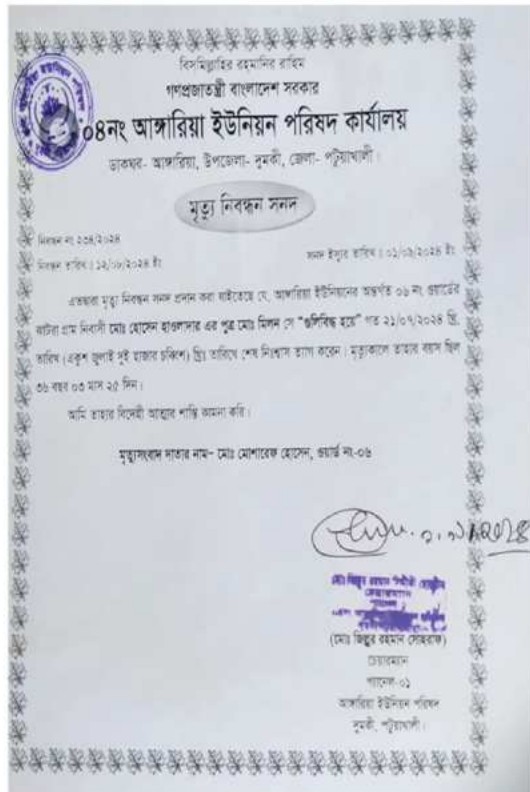 বিসমিল্লাহির রহমানির রাহিম
গণপ্রজাতন্ত্রী বাংলাদেশ সরকার
০৪নং আঙ্গারিয়া ইউনিয়ন পরিষদ কার্যালয়
ডাকঘর- আঙ্গারিয়া, উপজেলা- দুমকী, জেলা- পটুয়াখালী।
মৃত্যু নিবন্ধন সনদ
নিবন্ধন নং ২৩৪/২০২৪
সনদ ইস্যুর তারিখ : ০১/০৯/২০২৪ ইং
নিবন্ধন তারিখ : ১২/০৮/২০২৪ ইং
এতদ্বারা মৃত্যু নিবন্ধন সনদ প্রদান করা যাইতেছে যে, আঙ্গারিয়া ইউনিয়নের অন্তর্গত ০৬ নং ওয়ার্ডের
গ্রাম নিবাসী মোঃ হোসেন হাওলাদার এর পুত্র মোঃ মিলন সে "গুলিবিদ্ধ হয়ে" গত ২১/০৭/২০২৪ খ্রি.
তারিখ (একুশ জুলাই দুই হাজার চব্বিশ) খ্রিঃ তারিখে শেষ নিঃশ্বাস ত্যাগ করেন। মৃত্যুকালে তাহার বয়স ছিল
৩৬ বছর ০৩ মাস ২৫ দিন।
আমি তাহার বিদেহী আত্মার শান্তি কামনা করি।
মৃত্যুসংবাদ দাতার নাম- মোঃ মোশারেফ হোসেন, ওয়ার্ড নং-০৬
(মোঃ জিল্লুর রহমান সোহরাফ)
চেয়ারম্যান
প্যানেল-০১
আঙ্গারিয়া ইউনিয়ন পরিষদ
দুমকী, পটুয়াখালী।